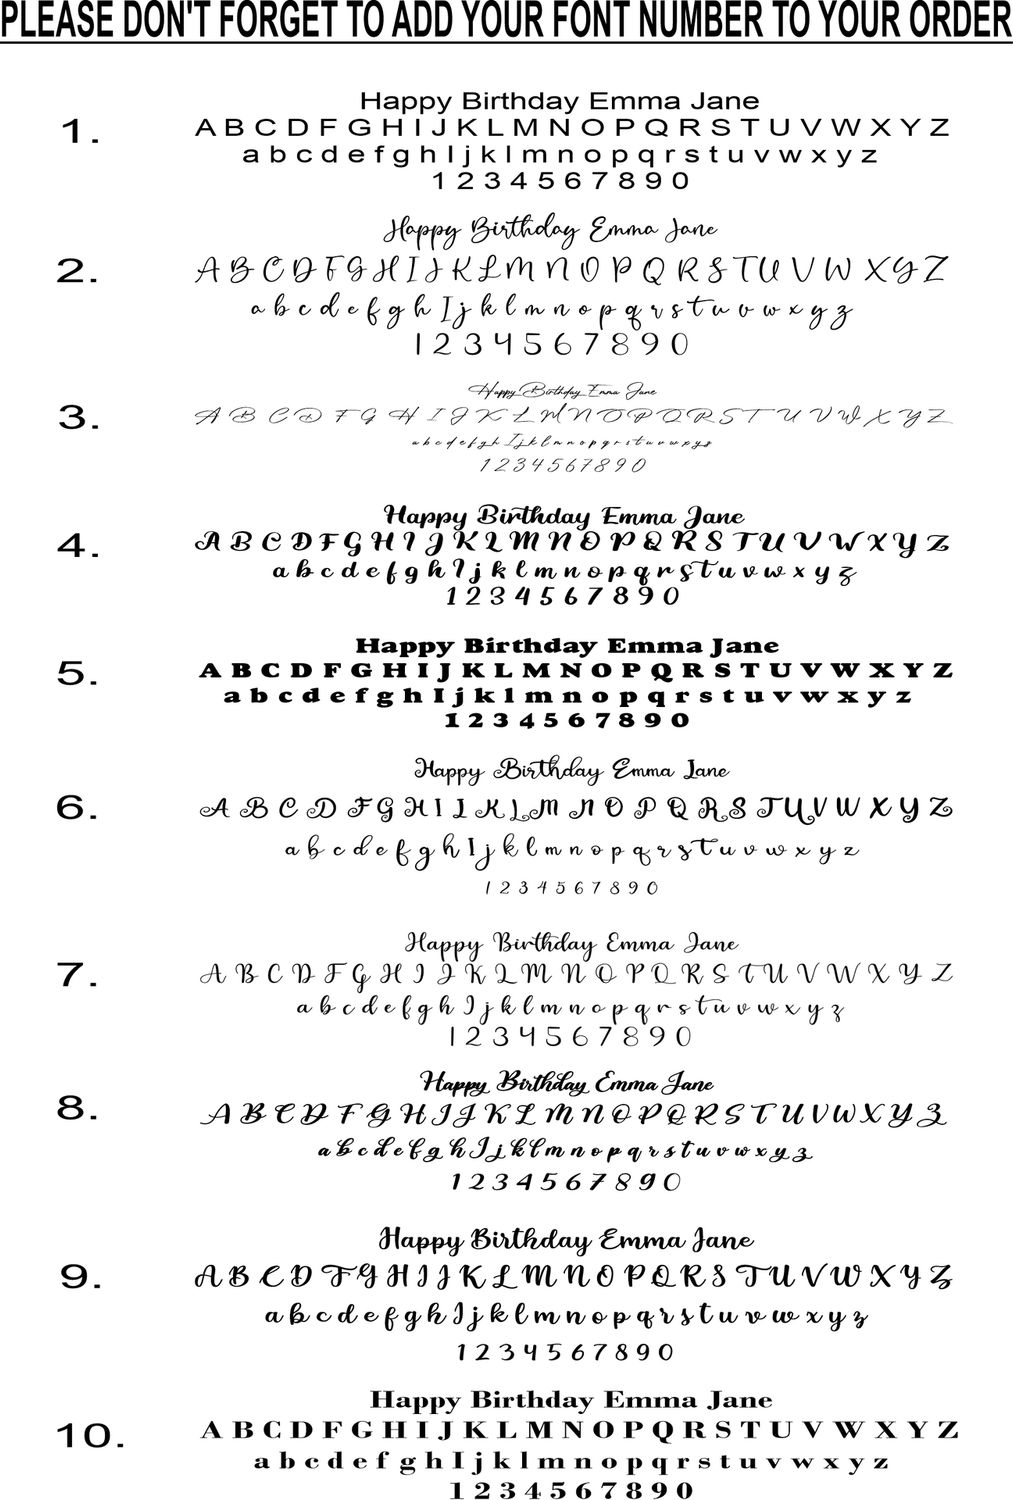 PLEASE DON'T FORGET TO ADD YOUR FONT NUMBER TO YOUR ORDER
1.
Happy Birthday Emma Jane
A B C D F G H I J K L M N O P Q R S T U V W X Y Z
a b c d e f g h I j k l m n o p q r s t u v w x y z
1 2 3 4 5 6 7 8 9 0
2.
Happy Birthday Emma Jane
A B C D F G H I J K L M N O P Q R S T U V W X Y Z
a b c d e f g h I j k l m n o p q r s t u v w x y z
1 2 3 4 5 6 7 8 9 0
3.
Happy Birthday Emma Jane
A B C D F G H I J K L M N O P Q R S T U V W X Y Z
a b c d e f g h I j k l m n o p q r s t u v w x y z
1 2 3 4 5 6 7 8 9 0
4.
Happy Birthday Emma Jane
A B C D F G H I J K L M N O P Q R S T U V W X Y Z
a b c d e f g h I j k l m n o p q r s t u v w x y z
1 2 3 4 5 6 7 8 9 0
5.
Happy Birthday Emma Jane
A B C D F G H I J K L M N O P Q R S T U V W X Y Z
a b c d e f g h I j k l m n o p q r s t u v w x y z
1 2 3 4 5 6 7 8 9 0
6.
Happy Birthday Emma Jane
A B C D F G H I J K L M N O P Q R S T U V W X Y Z
a b c d e f g h I j k l m n o p q r s t u v w x y z
1 2 3 4 5 6 7 8 9 0
7.
Happy Birthday Emma Jane
A B C D F G H I J K L M N O P Q R S T U V W X Y Z
a b c d e f g h I j k l m n o p q r s t u v w x y z
1 2 3 4 5 6 7 8 9 0
8.
Happy Birthday Emma Jane
A B C D F G H I J K L M N O P Q R S T U V W X Y Z
a b c d e f g h I j k l m n o p q r s t u v w x y z
1 2 3 4 5 6 7 8 9 0
9.
Happy Birthday Emma Jane
A B C D F G H I J K L M N O P Q R S T U V W X Y Z
a b c d e f g h I j k l m n o p q r s t u v w x y z
1 2 3 4 5 6 7 8 9 0
10.
Happy Birthday Emma Jane
A B C D F G H I J K L M N O P Q R S T U V W X Y Z
a b c d e f g h I j k l m n o p q r s t u v w x y z
1 2 3 4 5 6 7 8 9 0